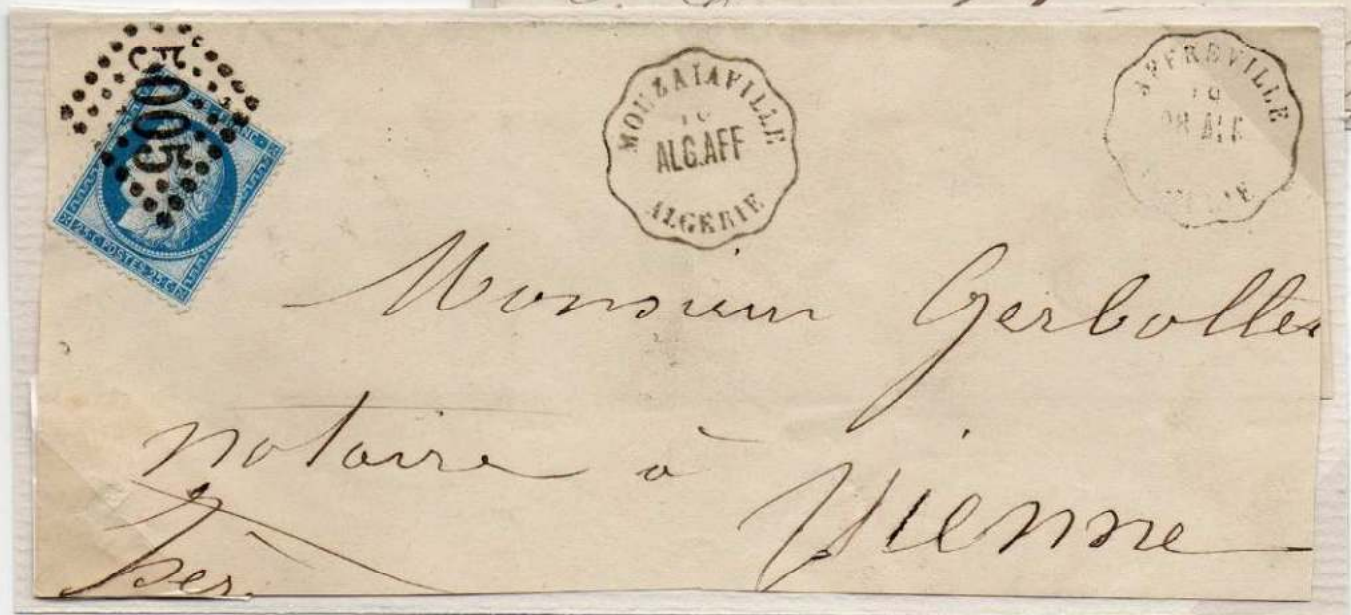 5005
FRANC
25 C POSTES 25 C
MOUZAIAVILLE
10
ALG.AFF
ALGERIE
AFFREVILLE
10
ALGERIE
Monsieur Gerbolles
notaire à Vienne
Iser.